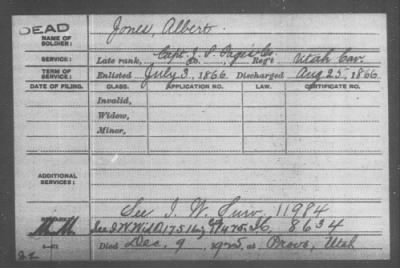 DEAD
NAME OF SOLDIER: Jones, Albert.
SERVICE: Late rank, Capt. J. S. Page's Co., Reg't Utah Cav.
TERM OF SERVICE: Enlisted July 3, 1866 Discharged Aug 25, 1866
DATE OF FILING. CLASS. APPLICATION NO. LAW. CERTIFICATE NO.
Invalid,
Widow,
Minor,
ADDITIONAL SERVICES:
See I. W. Surv. 11984
REMARKS: See I. W. Wid O. 17516 8634
Died Dec. 9 at Provo, Utah